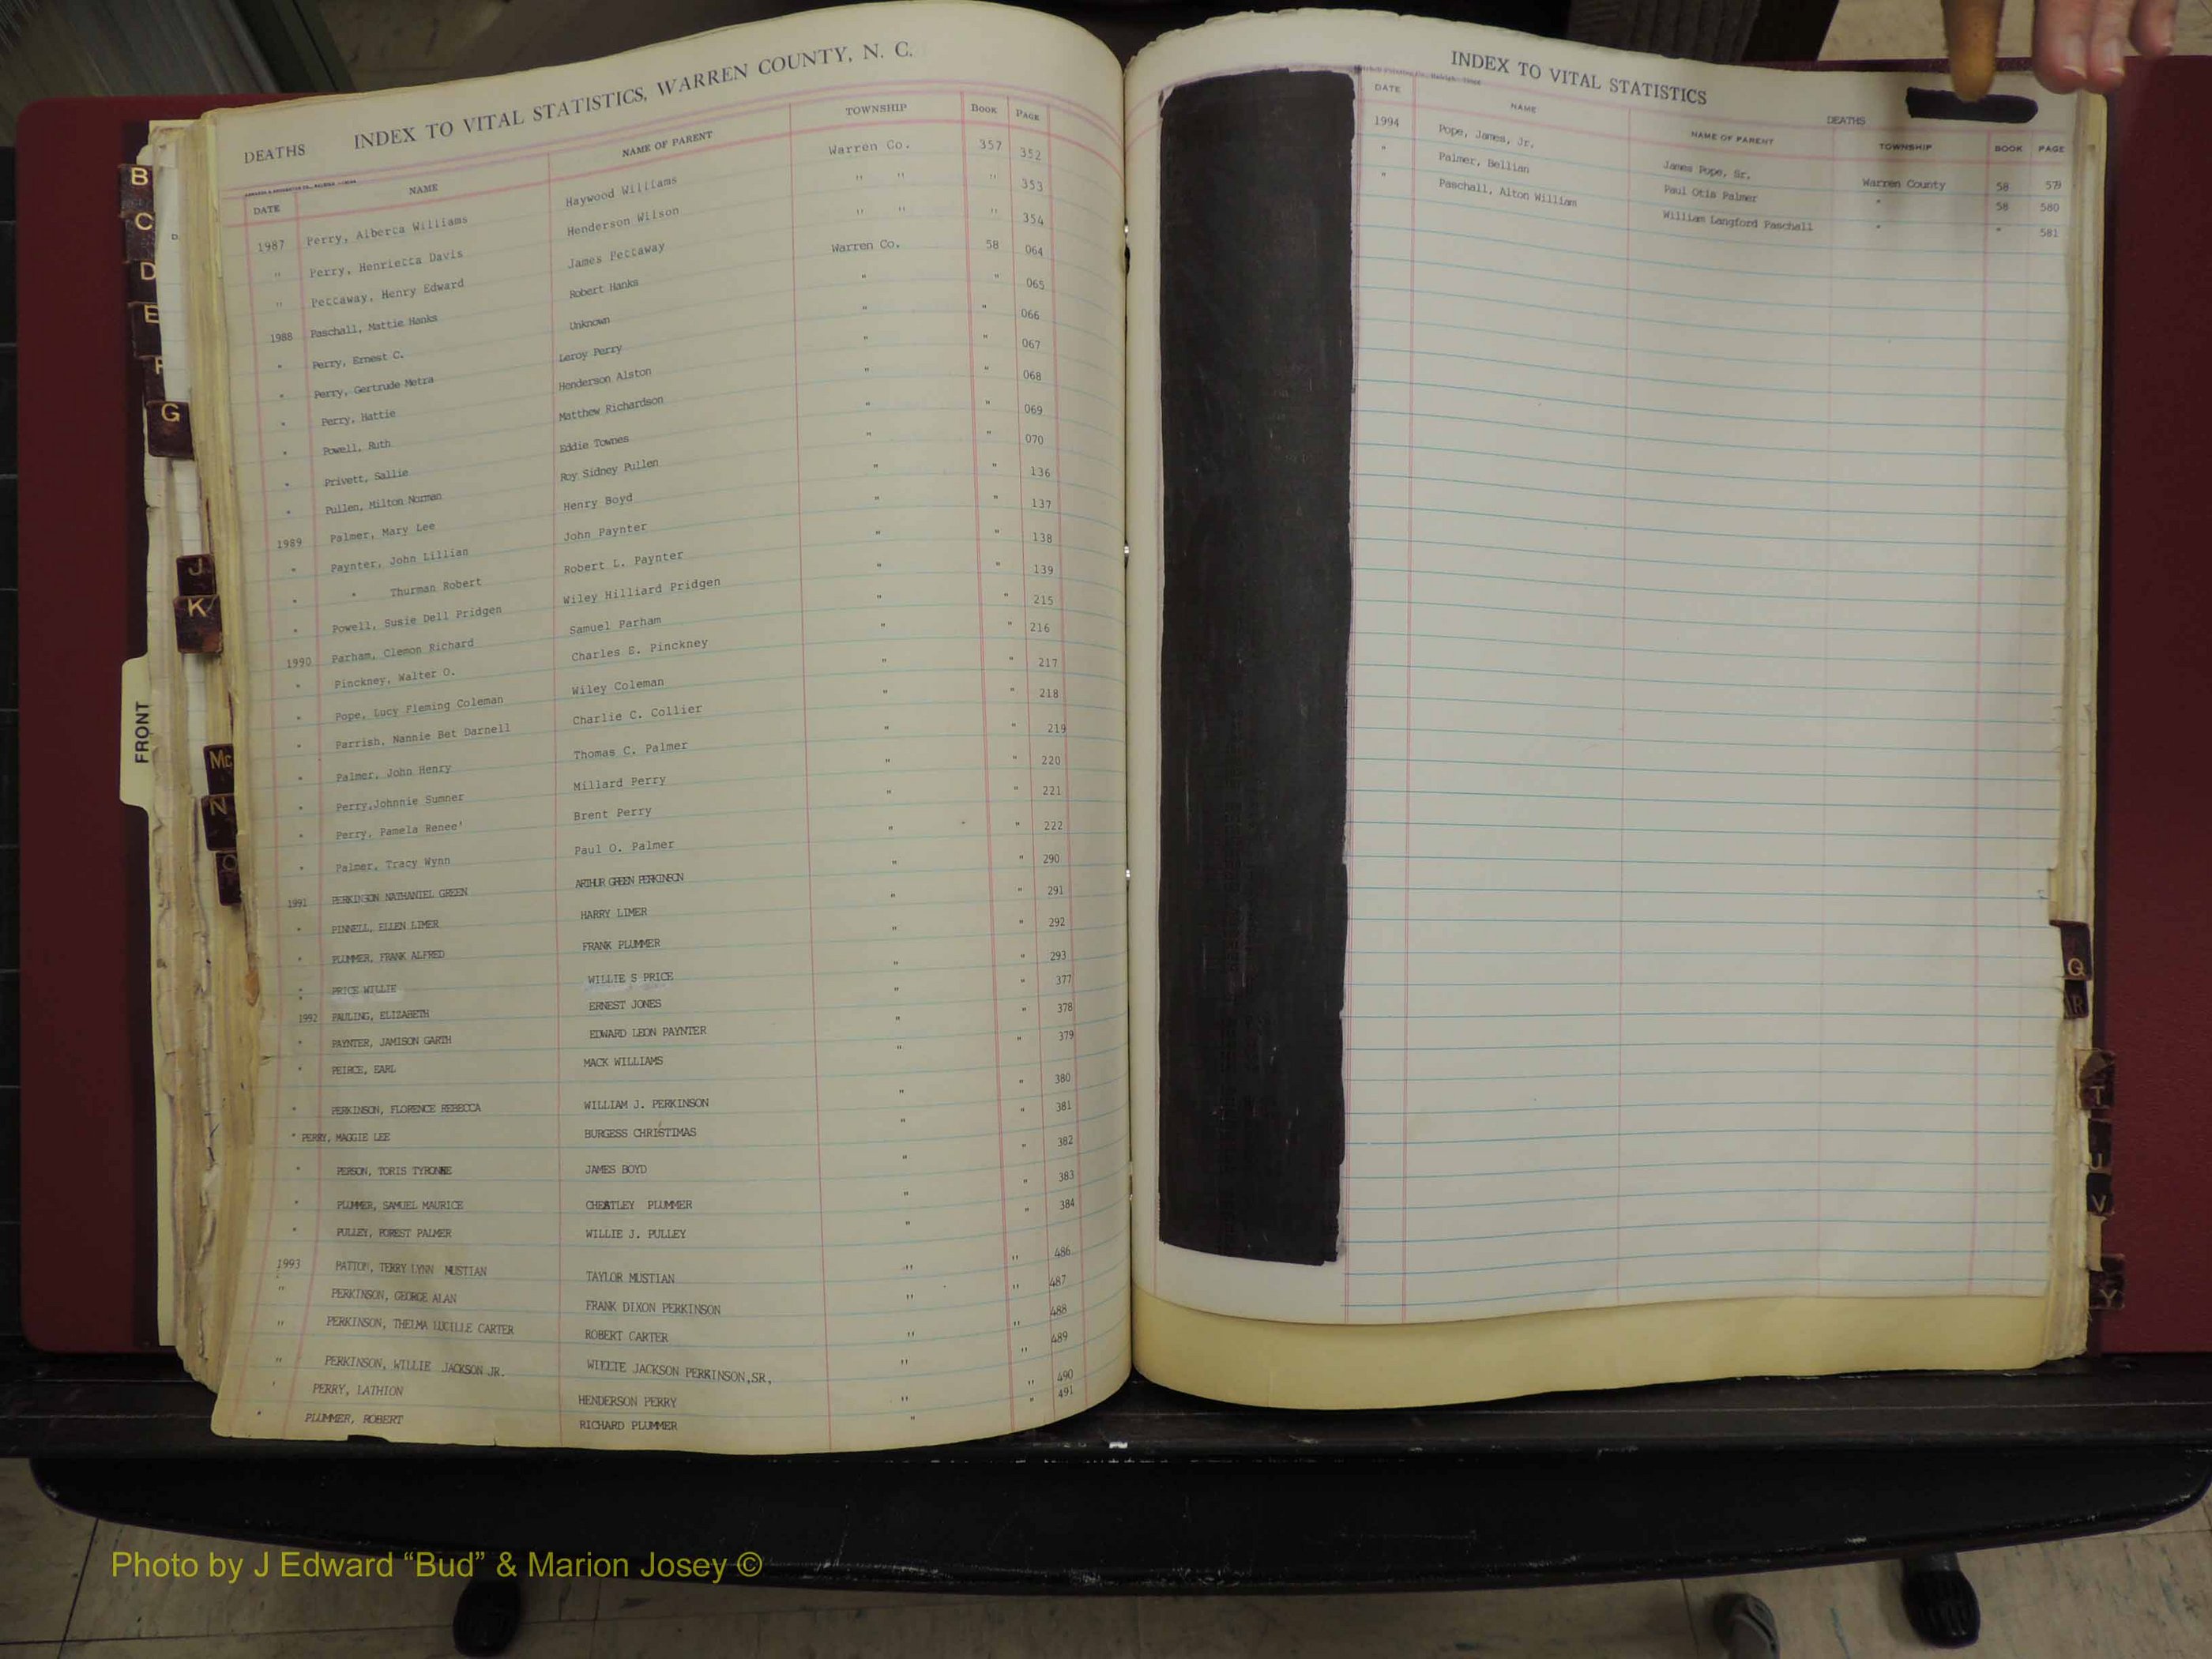 INDEX TO VITAL STATISTICS, WARREN COUNTY, N. C.
DEATHS
DATE NAME NAME OF PARENT TOWNSHIP BOOK PAGE
1987 Perry, Alberta Williams Haywood Williams Warren Co. 357 352
" Perry, Henrietta Davis Henderson Wilson " " " 353
" Pettaway, Henry Edward James Pettaway " " " 354
1988 Paschall, Mattie Hanks Robert Hanks Warren Co. 58 064
" Perry, Ernest C. Unknown " " 065
" Perry, Gertrude Metra Leroy Perry " " 066
" Perry, Hattie Henderson Alston " " 067
" Powell, Ruth Matthew Richardson " " 068
" Privett, Sallie Eddie Townes " " 069
" Pullen, Milton Norman Roy Sidney Pullen " " 070
1989 Palmer, Mary Lee Henry Boyd " " 136
" Paynter, John Lillian John Paynter " " 137
" " Thurman Robert Robert L. Paynter " " 138
" Powell, Susie Dell Pridgen Wiley Hilliard Pridgen " " 139
1990 Parham, Clemon Richard Samuel Parham " " 215
" Pinckney, Walter O. Charles E. Pinckney " " 216
" Pope, Lucy Fleming Coleman Wiley Coleman " " 217
" Parrish, Nannie Bet Darnell Charlie C. Collier " " 218
" Palmer, John Henry Thomas C. Palmer " " 219
" Perry,Johnnie Sumner Millard Perry " " 220
" Perry, Pamela Renee' Brent Perry " " 221
" Palmer, Tracy Wynn Paul O. Palmer " " 222
1991 PERKINSON NATHANIEL GREEN ARTHUR GREEN PERKINSON " " 290
" PINNELL, ELLEN LIMER HARRY LIMER " " 291
" PLUMMER, FRANK ALFRED FRANK PLUMMER " " 292
" PRICE WILLIE WILLIE S PRICE " " 293
1992 PAULING, ELIZABETH ERNEST JONES " " 377
" PAYNTER, JAMISON GARTH EDWARD LEON PAYNTER " " 378
" PEIRCE, EARL MACK WILLIAMS " " 379
" PERKINSON, FLORENCE REBECCA WILLIAM J. PERKINSON " " 380
" PERRY, MAGGIE LEE BURGESS CHRISTIMAS " " 381
" PERSON, TORIS TYRONE JAMES BOYD " " 382
" PLUMMER, SAMUEL MAURICE CHEATLEY PLUMMER " " 383
" PULLEY, FOREST PALMER WILLIE J. PULLEY " " 384
1993 PATTON, TERRY LYNN MUSTIAN TAYLOR MUSTIAN " " 486
" PERKINSON, GEORGE ALAN FRANK DIXON PERKINSON " " 487
" PERKINSON, THELMA LUCILLE CARTER ROBERT CARTER " " 488
" PERKINSON, WILLIE JACKSON JR. WILLIE JACKSON PERKINSON,SR, " " 489
" PERRY, LATHION HENDERSON PERRY " " 490
" PLUMMER, ROBERT RICHARD PLUMMER " " 491
INDEX TO VITAL STATISTICS
DEATHS
DATE NAME NAME OF PARENT TOWNSHIP BOOK PAGE
1994 Pope, James, Jr. James Pope, Sr. Warren County 58 579
" Palmer, Bellian Paul Otis Palmer " 58 580
" Paschall, Alton William William Langford Paschall " " 581
B
C
D
E
F
G
J
K
FRONT
Mc
N
O
Q
R
T
U
V
Y
Photo by J Edward “Bud” & Marion Josey ©